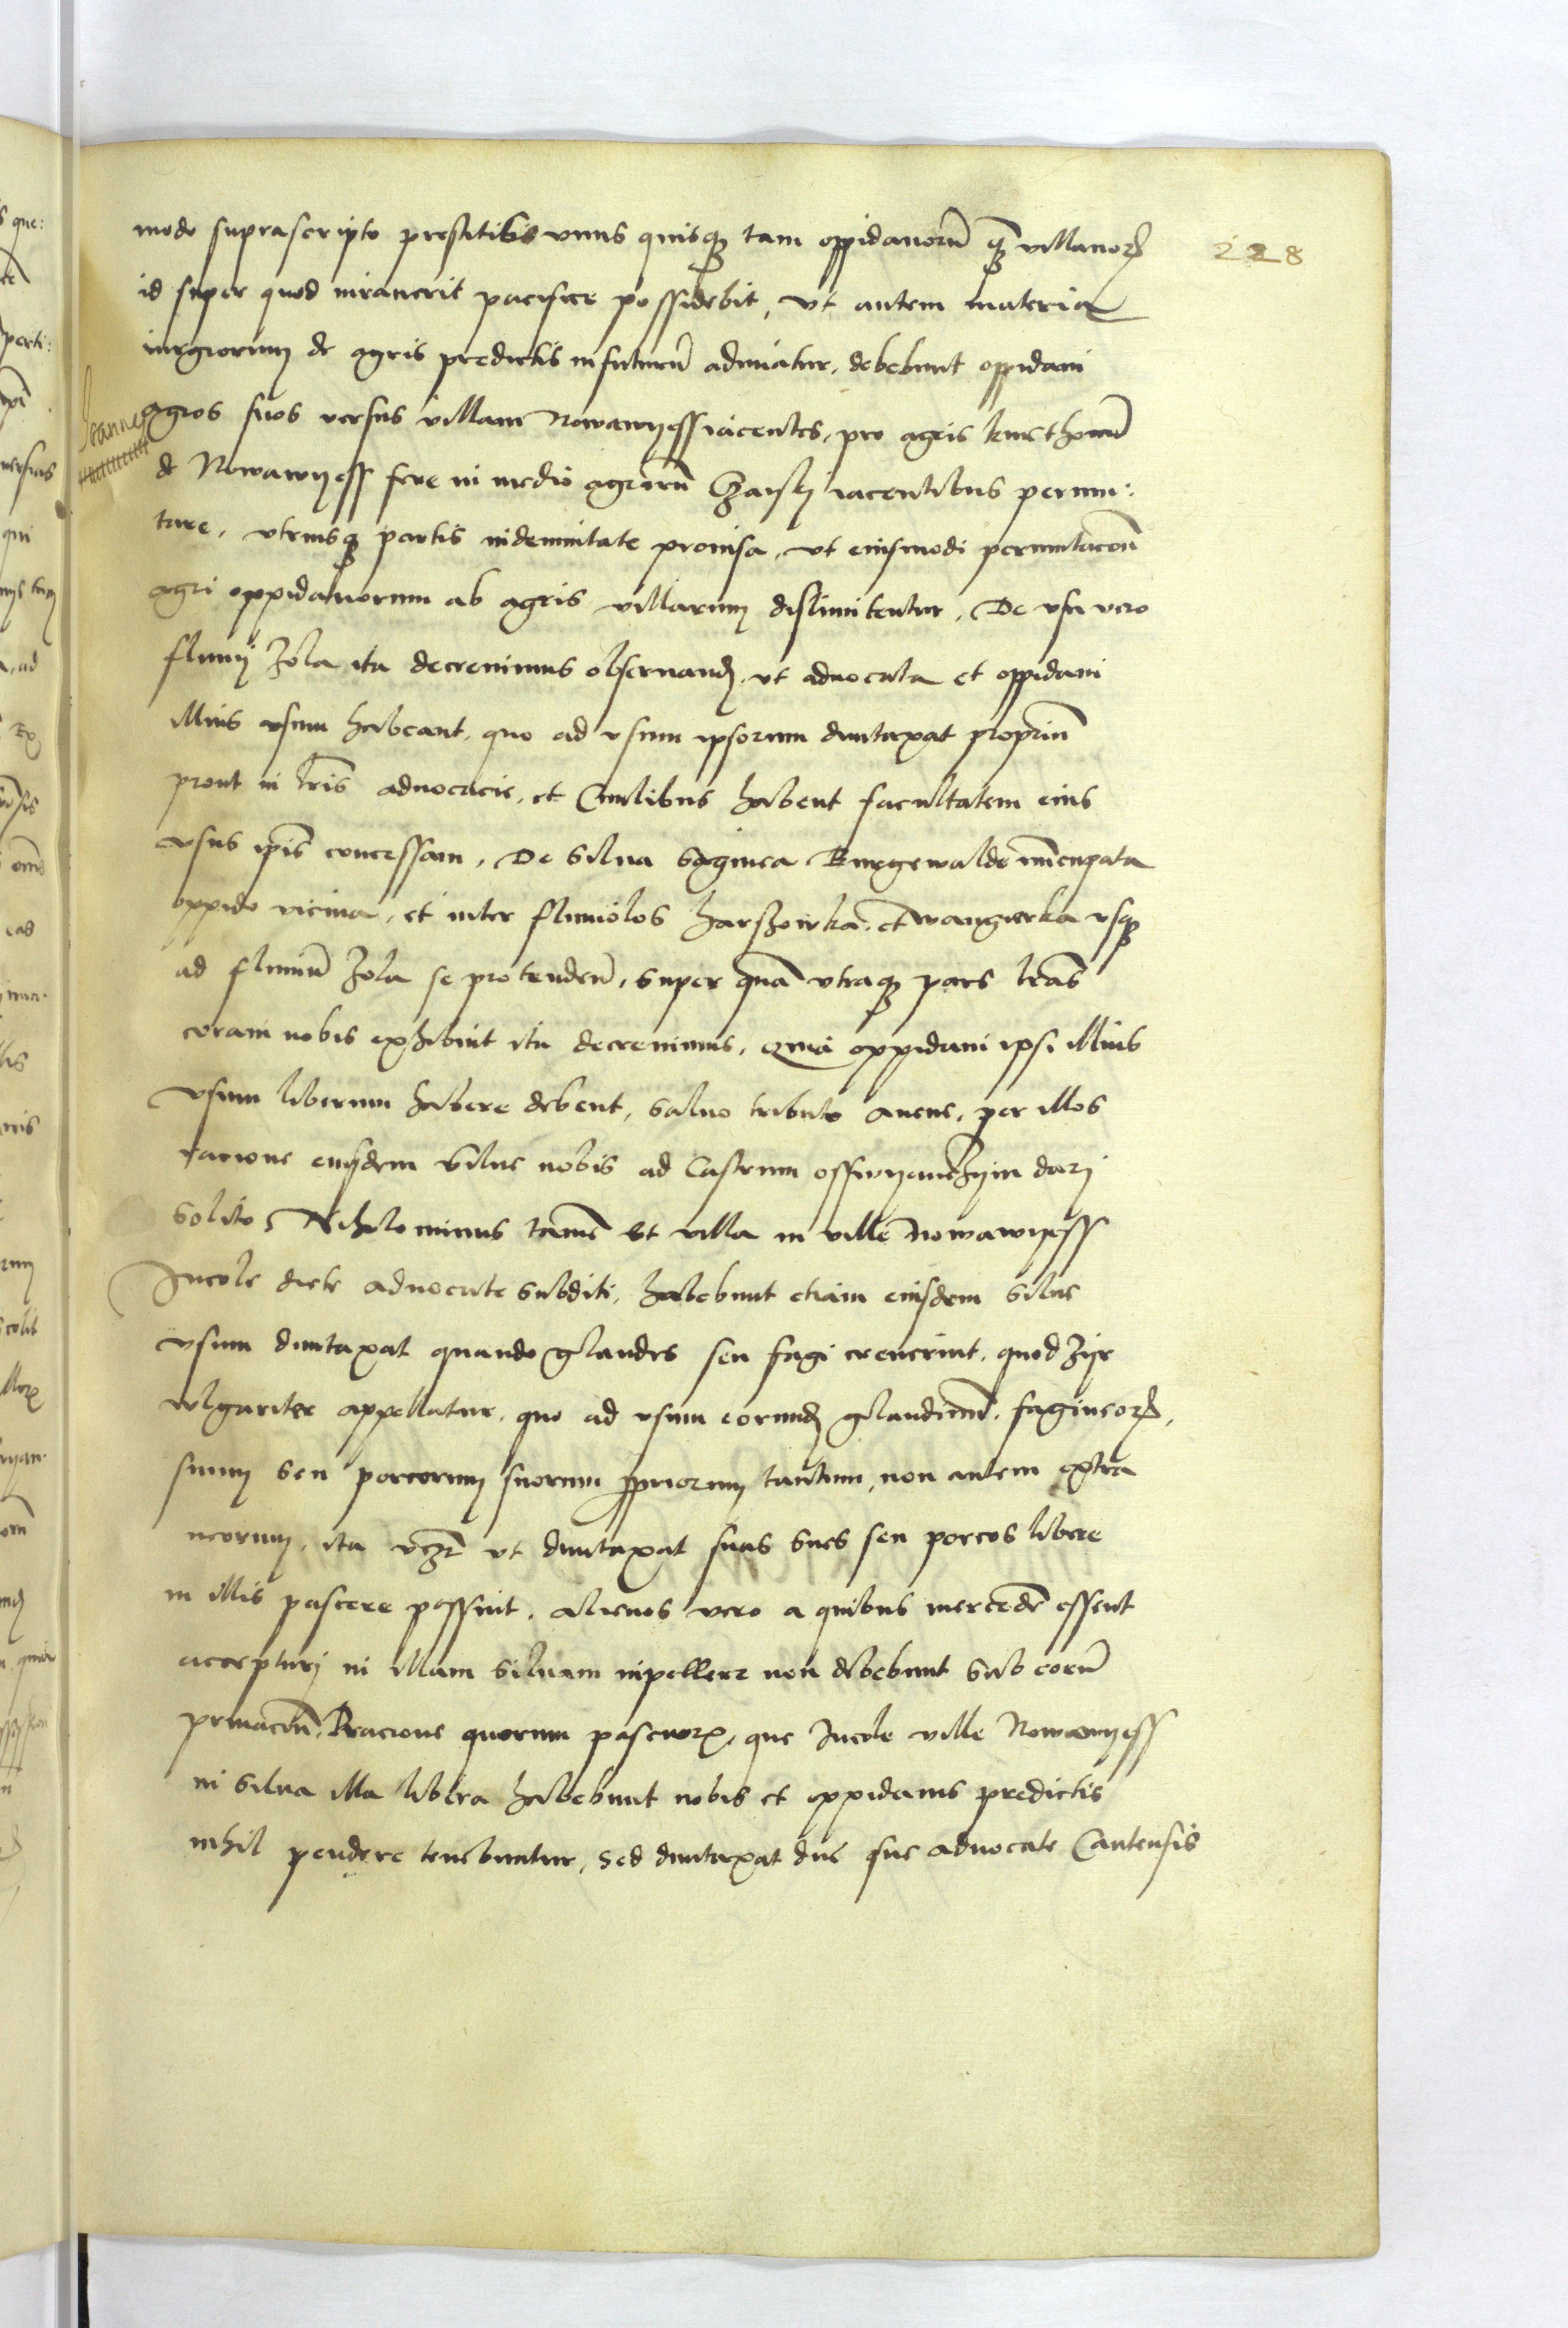 228
modo suprascripto prestitis unus quisq3 tam oppidanorū q3 villanor3
id super quod iuraverit pacifice possidebit, vt autem materia
iurgiorum de agris predictis in futurū adimatur, debebunt oppidani
Joannes
agros suos versus villam Nowawyess iacentes, pro agris kmethonū
de Nowawyess fere in medio agrorū iacentibus permu:
tare, vtriusq3 partis indemnitate provisa, vt eiusmodi permutacōn
agri oppidanorum ab agris villarum dislimitentur, De vsu vero
fluvij Zola ita decrevimus observand3, vt advocata et oppidani
illius vsum habeant, quo ad vsum ipsorum duntaxat propriū
prout in lr̄is advocacie, et Civilibus habent facultatem eius
vsus ip̄is concessam, De Silva faginea Burgewalde nūcupata
oppido vicina, et inter fluviolos et usq3
ad fluviū Zola se protenden̄, super quā vtraq3 pars lr̄as
coram nobis exhibuit ita decrevimus, Quia oppidani ipsi illius
vsum liberum habere debent, salvo tributo avene, per illos
racione eiusdem Silve nobis ad Castrum dari
solito, Nihilominus tamē et villa in ville Nowawyess
Incole dicte advocate subditi, habebunt etiam eiusdem Silve
vsum duntaxat quando glandes seu fagi creverint, quod zijr
vlgariter appellatur, quo ad vsum eorund3 glandium, fagineor3,
suum seu porcorum suorum ppriorum tantum, non autem extra
neorum, ita ut duntaxat suas sues seu porcos libere
in illis pascere possint, alienos vero a quibus mercedē essent
accepturi in illam silvam inpellere non debebunt sub eorū
privacōn, Racione quorum pascuor3, que Incole ville Nowawyess
in Silva illa libera habebunt nobis et oppidanis predictis
nihil pendere tenebuntur, Sed duntaxat dn̄e sue advocate